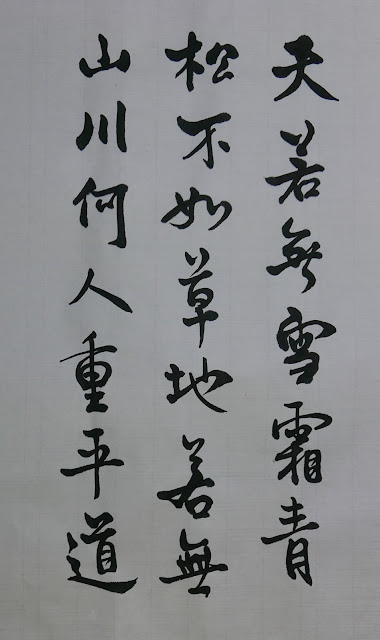 天若無雪霜青
松不如草地若無
山川何人重平道